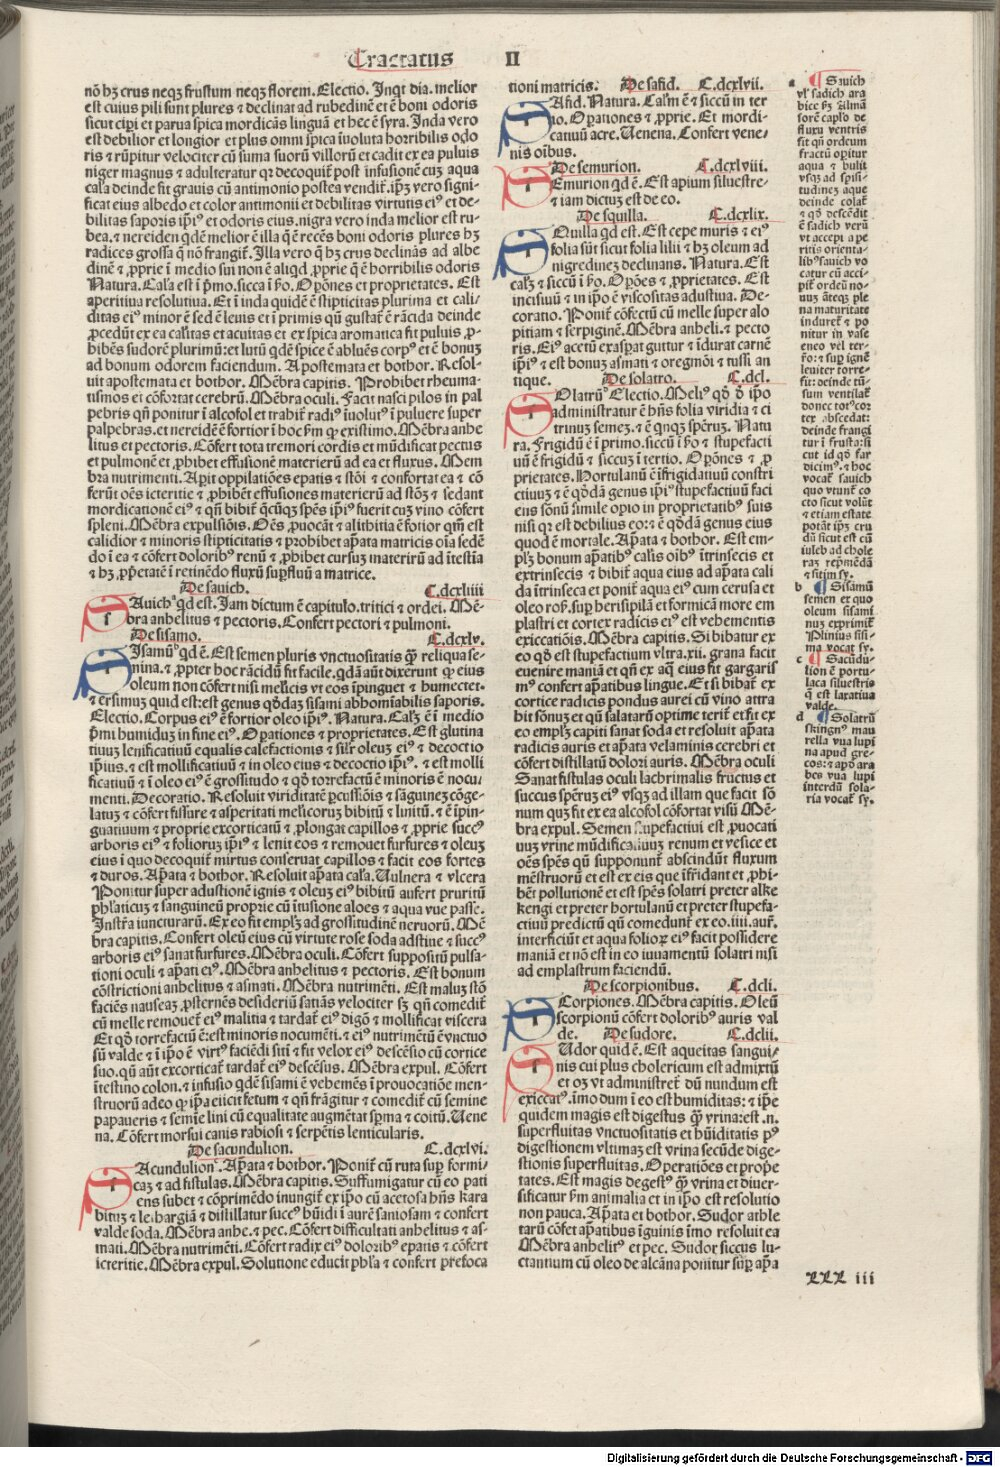 Tractatus II
nō hʒ crus neqʒ frustum neqʒ florem. Electio. Inqt dia. melior
est cuius pili sunt plures ⁊ declinat ad rubedinē et ē boni odoris
sicut cipi et parua spica mordicās linguā et hec ē syra. Inda vero
est debilior et longior et plus omni spica iuoluta horribilis odo
ris ⁊ rūpitur velociter cū suma suorū villorū et cadit ex ea puluis
niger magnus ⁊ adulteratur qr decoquit̄ post infusionē cuʒ aqua
cala deinde fit grauis cū antimonio postea vendit̄. ip̄ʒ vero signi-
ficat eius albedo et color antimonii et debilitas virtutis eiꝰ et de-
bilitas saporis ip̄iꝰ et odoris eius. nigra vero inda melior est ru-
bea. ⁊ nereiden qdē melior ē illa q̄ ē recēs boni odoris plures hʒ
radices grossa q̄ nō frangit̄. Illa vero q̄ hʒ crus declinās ad albe
dinē ⁊ ꝓprie ī medio sui non ē aliqd ꝓprie q̄ ē horribilis odoris
Natura. Cal̄a est ī p̄mo. sicca ī ẞo. Oꝑōnes et proprietates. Est
aperitiua resolutiua. Et ī inda quidē ē stipticitas plurima et cali-
ditas eiꝰ minor ē sed ē lenis et ī primis qū gustat̄ ē rācida deinde
ꝓcedūt ex ea calitas et acuitas et ex spica aromatica fit puluis ꝓ-
hibēs sudorē plurimū: et lutū qdē spice ē abluēs corpꝰ et ē bonuʒ
ad bonum odorem faciendum. Apostemata et bothor. Resol-
uit apostemata et bothor. Mēbra capitis. Prohibet rheuma-
tismos et cōfortat cerebrū. Mēbra oculi. Facit nasci pilos in pal
pebris qn̄ ponitur ī alcofol et trahit̄ radiꝰ īuolutꝰ ī puluere super
palpebras. et nereidē ē fortior ī hoc ẞm ꝙ existimo. Mēbra anhe
litus et pectoris. Cōfert tota tremori cordis et mūdificat pectus
et pulmonē et ꝓhibet effusionē materierū ad ea et fluxus. Mem
bra nutrimenti. Aꝑit oppilatiōes epatis ⁊ stōi ⁊ confortat ea ⁊ cō
ferūt oēs icteritie ⁊ ꝓhibēt effusiones materierū ad stōʒ ⁊ sedant
mordicationē eiꝰ ⁊ qn̄ bibit̄ q̄cūqʒ spēs ip̄iꝰ fuerit cuʒ vino cōfert
spleni. Mēbra expulsiōis. Oēs ꝓuocāt ⁊ alithitia ē fotior qm̄ est
calidior ⁊ minoris stipticitatis ⁊ prohibet ap̄ata matricis oīa sedē
do ī ea ⁊ cōfert doloribꝰ renū ⁊ ꝓhibet cursuʒ materirū ad ītestīa
⁊ hʒ ꝓp̄etatē ī retinēdo fluxū suꝑfluū a matrice.
De sauich. C.dcxliiii
SAuich qd est. Iam dictum ē capitulo. tritici ⁊ ordei. Mē-
bra anhelitus ⁊ pectoris. Confert pectori ⁊ pulmoni.
De sisamo. C.dcxlv.
SIsamū qd ē. Est semen pluris vnctuositatis ꝙ̄ reliqua se-
mina. ⁊ ꝓpter hoc rācidū fit facile. qdā aūt dixerunt ꝙ eius
oleum non cōfert nisi meĺicis vt eos īpinguet ⁊ humectet.
⁊ ersimuʒ quid est: est genus qōdaʒ sisami abhomīabilis saporis.
Electio. Corpus eiꝰ ē fortior oleo ip̄iꝰ. Natura. Calʒ ē ī medio
p̄mi humiduʒ in fine eiꝰ. Oꝑationes ⁊ proprietates. Est glutina
tiuuʒ lenificatiuū equalis calefactionis ⁊ sil̄r oleuʒ eiꝰ ⁊ decoctio
ip̄ius. ⁊ est mollificatiuū ⁊ in oleo eius ⁊ decoctio ip̄iꝰ. ⁊ est molli
ficatiuū ⁊ ī oleo eiꝰ ē grossitudo ⁊ qō torrefactū ē minoris ē nocu-
menti. Decoratio. Resoluit viriditatē ꝑcussiōis ⁊ sāguineʒ cōge-
latuʒ ⁊ cōfert fissure ⁊ asperitati meĺicorum bibitū ⁊ linitū. ⁊ ē īpin-
guatiuum ⁊ proprie excorticatū ⁊ ꝓlongat capillos ⁊ ꝓprie succꝰ
arboris eiꝰ ⁊ foliorum ip̄iꝰ ⁊ lenit eos ⁊ remouet furfures ⁊ oleuʒ
eius ī quo decoquit̄ mirtus conseruat capillos ⁊ facit eos fortes
⁊ duros. Ap̄ata ⁊ bothor. Resoluit ap̄ata cal̄a. Uulnera ⁊ vlcera
Ponitur super adustionē ignis ⁊ oleuʒ eiꝰ bibitū aufert pruritū
phl̄aticuʒ ⁊ sanguineū proprie cū ītusione aloes ⁊ aqua vue passe.
Instr̄a iuncturarū. Ex eo fit emplʒ ad grossitudinē neruorū. Mē
bra capitis. Confert oleū eius cū virtute rose soda adstiue ⁊ succꝰ
arboris eiꝰ sanat furfures. Mēbra oculi. Cōfert suppositū pulsa-
tioni oculi ⁊ ap̄ati eiꝰ. Mēbra anhelitus ⁊ pectoris. Est bonum
cōstrictioni anhelitus ⁊ asmati. Mēbra nutrimēti. Est maluʒ stōō
faciēs nauseaʒ ꝓsternēs desideriū satiās velociter sʒ qn̄ comedit̄
cū melle remouet̄ eiꝰ malitia ⁊ tardat̄ eiꝰ digō ⁊ mollificat viscera
Et qō torrefactū ē: est minoris nocumēti. ⁊ eiꝰ nutrimētū ē vnctuo
sū valde ⁊ ī ip̄o ē virtꝰ faciēdi siti ⁊ fit velox eiꝰ descēsio cū cortice
suo. qū aūt excorticat̄ tardat̄ eiꝰ descēsus. Mēbra expul. Cōfert
ītestino colon. ⁊ infusio qdē sisami ē vehemēs ī prouocatiōe men-
struorū adeo ꝙ ip̄a eiicit fetum ⁊ qn̄ frāgitur ⁊ comedit̄ cū semine
papaueris ⁊ semie lini cū equalitate augmētat sꝑma ⁊ coitū. Uene
na. Cōfert morsui canis rabiosi ⁊ serpētis lenticularis.
De sacundulion. C.dcxlvi.
SAcundulion. Ap̄ata ⁊ bothor. Ponit̄ cū ruta suꝑ formi-
caʒ ⁊ ad fistulas. Mēbra capitis. Suffumigatur cū eo pati
ens subet ⁊ cōprimēdo inungit̄ ex ip̄o cū acetosa hn̄s kara
bituʒ ⁊ leihargiā ⁊ distillatur succꝰ hūidi ī aurē saniosam ⁊ confert
valde soda. Mēbra anhe. ⁊ pec. Cōfert difficultati anhelitus ⁊ as-
mati. Mēbra nutrimēti. Cōfert radix eiꝰ doloribꝰ epatis ⁊ cōfert
icteritie. Mēbra expul. Solutione educit phl̄a ⁊ confert prefoca
tioni matricis. De safid. C.dcxlvii.
SAfid. Natura. Cal̄m ē ⁊ siccū in ter
tio. Oꝑationes ⁊ ꝓprie. Et mordi-
catiuū acre. Uenena. Confert vene-
nis oībus.
De semurion. C.dcxlviii.
SEmurion qd ē. Est apium siluestre-
⁊ iam dictuʒ est de eo.
De squilla. C.dcxlix.
SQuilla qd est. Est cepe muris ⁊ eiꝰ
folia sūt sicut folia lilii ⁊ hʒ oleum ad
nigredineʒ declinans. Natura. Est
calʒ ⁊ siccū ī ẞo. Oꝑōes ⁊ ꝓprietates. Est
incisiuū ⁊ in ip̄o ē viscositas adustiua. De-
coratio. Ponit̄ cōfectū cū melle super alo
pitiam ⁊ serpiginē. Mēbra anheli. ⁊ pecto
ris. Eiꝰ acetū exasꝑat guttur ⁊ īdurat carnē
ip̄iꝰ ⁊ est bonuʒ asmati ⁊ oregmōi ⁊ tussi an
tique. De solatro. C.dcl.
SOlatrū Electio. Meliꝰ qō ō ip̄o
administratur ē hn̄s folia viridia ⁊ ci
trinuʒ semeʒ. ⁊ ē qnqʒ sp̄eruʒ. Natu
ra. Frigidū ē ī primo. siccū ī ẞo ⁊ stupefacti
uū ē frigidū ⁊ siccuʒ ī tertio. Oꝑōnes ⁊ ꝓ
prietates. Hortulanū ē īfrigidatiuū constri
ctiuuʒ ⁊ ē qōdā genus ip̄iꝰ stupefactiuū faci
ens sōnū simile opio in proprietatibꝰ suis
nisi qʒ est debilius eo: ⁊ ē qōdā genus eius
quod ē mortale. Ap̄ata ⁊ bothor. Est em-
plʒ bonum ap̄atibꝰ cal̄is oībꝰ ītrinsecis et
extrinsecis ⁊ bibit̄ aqua eius ad ap̄ata cali
da ītrinseca et ponit̄ aqua eiꝰ cum cerusa et
oleo rosꝰ. suꝑ herisipilā et formicā more em
plastri et cortex radicis eiꝰ est vehementis
exiccatiōis. Mēbra capitis. Si bibatur ex
eo qō est stupefactium vltra. xii. grana facit
euenire maniā et qn̄ ex aq̄ eius fit gargaris
mꝰ confert ap̄atibus lingue. Et si bibat̄ ex
cortice radicis pondus aurei cū vino attra
hit sōnuʒ et qū salatarū optime terit̄ et fit ex
eo emplʒ capiti sanat soda et resoluit ap̄ata
radicis auris et ap̄ata velaminis cerebri et
cōfert distillatū dolori auris. Mēbra oculi
Sanat fistulas oculi lachrimalis fructus et
succus sp̄eruʒ eiꝰ vsqʒ ad illam que facit sō
num qʒ fit ex ea alcofol cōfortat visū. Mē-
bra expul. Semen stupefactiui est ꝓuocati
uuʒ vrine mūdificatiuuʒ renum et vesice et
oēs spēs qū supponunt̄ abscindūt fluxum
mēstruorū et est ex eis que īfr̄idant et ꝓhi-
bēt pollutionē et est spēs solatri preter alke
kengi et preter hortulanū et preter stupefa-
ctiuū predictū qū comedunt̄ ex eo. iiii. aur̄.
interficiūt et aqua foliorum eiꝰ facit possidere
maniā et nō est in eo iuuamentū solatri nisi
ad emplastrum faciendū.
De scorpionibus. C.dcli.
SCorpiones. Mēbra capitis. Oleū
scorpionū cōfert doloribꝰ auris val
de. De sudore. C.dclii.
SUdor quid ē. Est aqueitas sangui-
nis cui plus cholericum est admixtū
et oʒ vt administret̄ dū nundum est
exiccatꝰ. īmo dum ī eo est humiditas: ⁊ ip̄e
quidem magis est digestus ꝙ̄ vrina: est. n.
superfluitas vnctuositatis et hūiditatis pꝰ
digestionem vltimaʒ est vrina secūde dige-
stionis superfluitas. Operatiōes et prop̄e
tates. Est magis degestꝰ ꝙ̄ vrina et diuer-
sificatur ẞm animalia et in ip̄o est resolutio
non pauca. Ap̄ata et bothor. Sudor athle
tarū cōfet ap̄atibus īguinis īmo resoluit ea
Mēbra anhelitꝰ et pec. Sudor siccus lu-
ctantium cū oleo de alcāna ponitur suꝑ ap̄a
LLL iii
a ¶ Sauich
vl̓ sadich ara
bice ẞʒ Alīnā
sorē caplo de
fluxu ventris
fit qn̄ ordeum
fractū opitur
aqua ⁊ bulit
vsqʒ ad spisi-
tudineʒ aque
deinde colat̄
⁊ qō descēdit
ē sadich verū
vt accepi a pe
ritis orienta-
libꝰ sauich vo
catur cū acci-
pit̄ ordeū no-
uuʒ āteqʒ ple
na maturitate
induret̄ ⁊ po
nitur in vase
eneo vel ter-
reo: ⁊ suꝑ ignē
leuiter torre-
fit: deinde tū-
sum ventilat̄
donec totꝰ cor
tex abscedat:
deinde frangi
tur ī frusta: si
cut id qō far
dicimꝰ. ⁊ hoc
vocat̄ sauich
quo vtunt̄ co
cto sicut volūt
⁊ etiam estate
potāt ip̄ʒ cru
dū sicut est cū
iuleb ad chole
raʒ rep̄mēdā
⁊ sitim sy.
b ¶ Sisamū
semen ex quo
oleum sisami
nuʒ exprimit̄
Plinius sisi-
ma vocat sy.
c ¶ Sacūdu-
lion ē portu-
laca siluestris
q̄ est laxatiua
valde.
d ¶ Solatrū
skingnʒ mau
rella vua lupi
na apud gre-
cos: ⁊ apō ara
bes vua lupi
interdū sola-
ria vocat̄ sy.
Digitalisierung gefördert durch die Deutsche Forschungsgemeinschaft - DFG